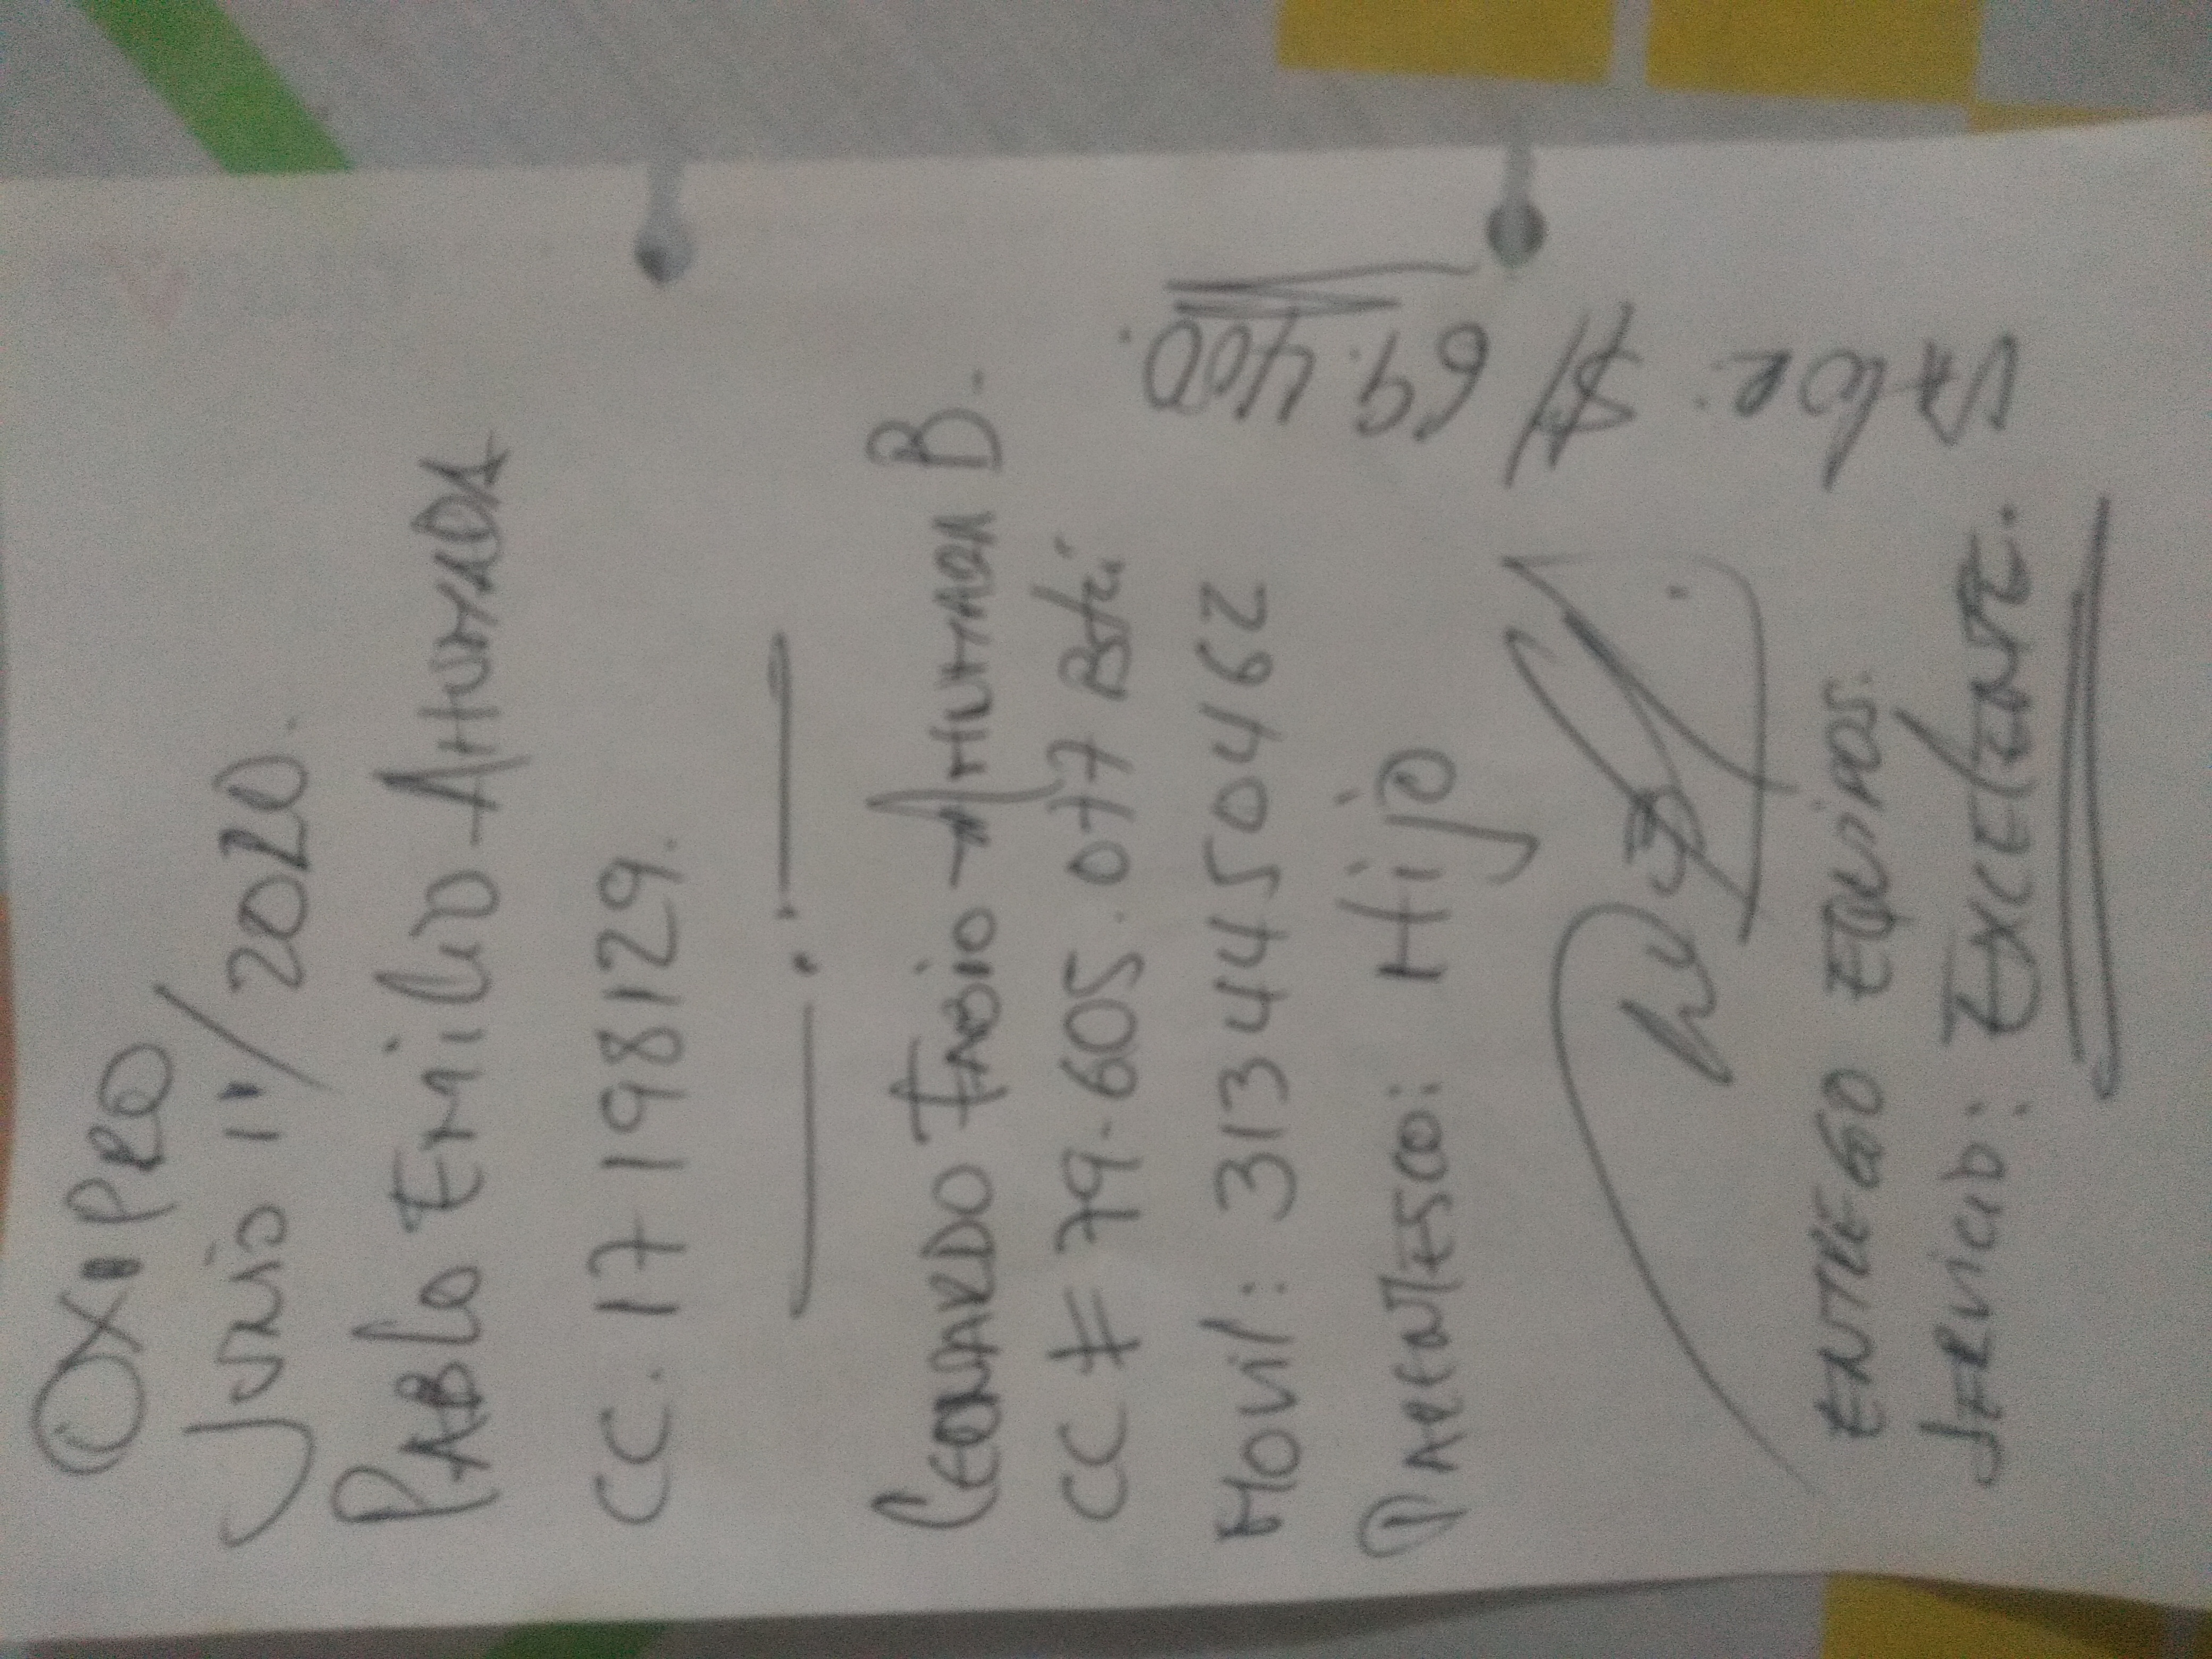 OXIPRO
Junio 11/2020.
PABLO EMILIO AHUMADA
CC. 17198129.
LEONARDO FABIO AHUMADA B.
CC # 79.605.077 Btá
MOVIL: 3134450462
PARENTESCO: HIJO
ENTREGO EQUIPOS.
SERVICIO: EXCELENTE.
VALOR: $/ 69.400.